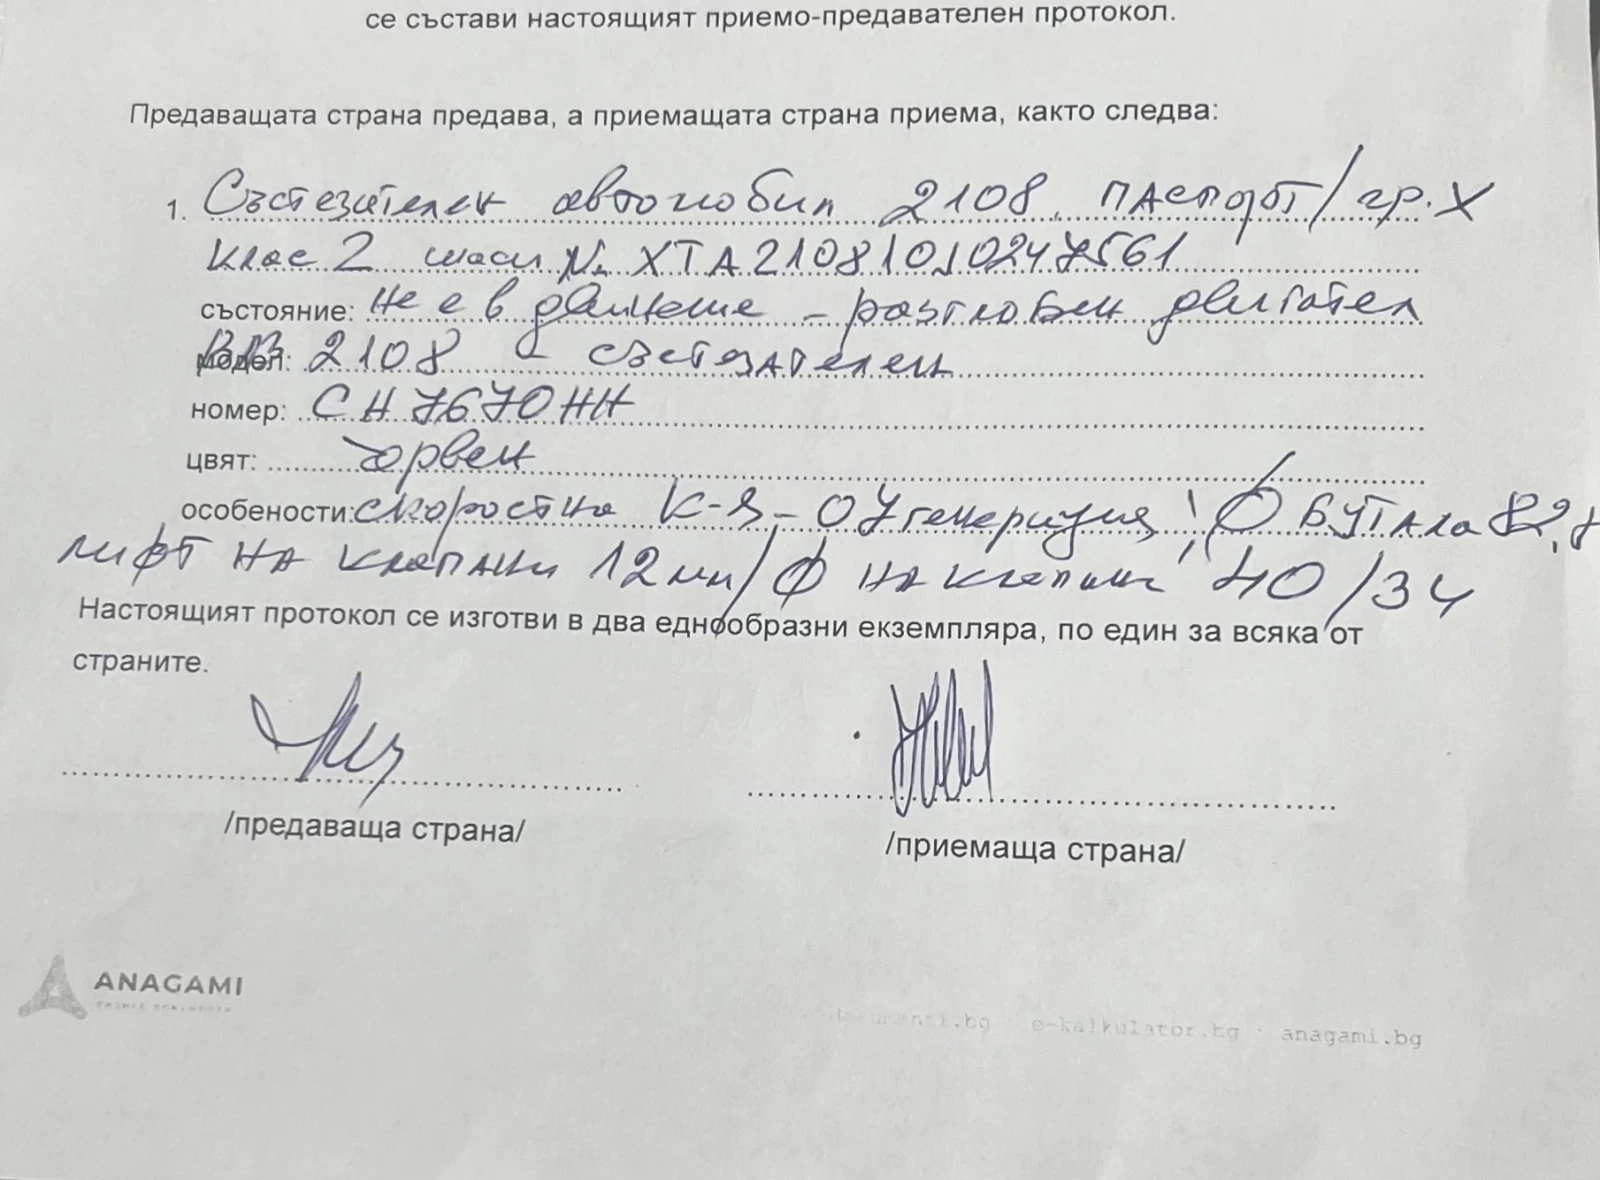 се състави настоящият приемо-предавателен протокол.
Предаващата страна предава, а приемащата страна приема, както следва:
1. Състезателен автомобил 2108, паспорт/гр. X
клас 2 шаси № XTA210810J0247561
състояние: Не е в движение – разглобен двигател
модел: ВАЗ 2108 – състезателен
номер: СН 7670 НН
цвят: червен
особености: скоростна к-я – 07 генериция; Ф Бутала 82,
лифт на клапани 12 мм/Ф на клапани 40/34
Настоящият протокол се изготви в два еднообразни екземпляра, по един за всяка от
страните.
/предаваща страна/ /приемаща страна/
ANAGAMI
e-kalkulator.bg · anagami.bg